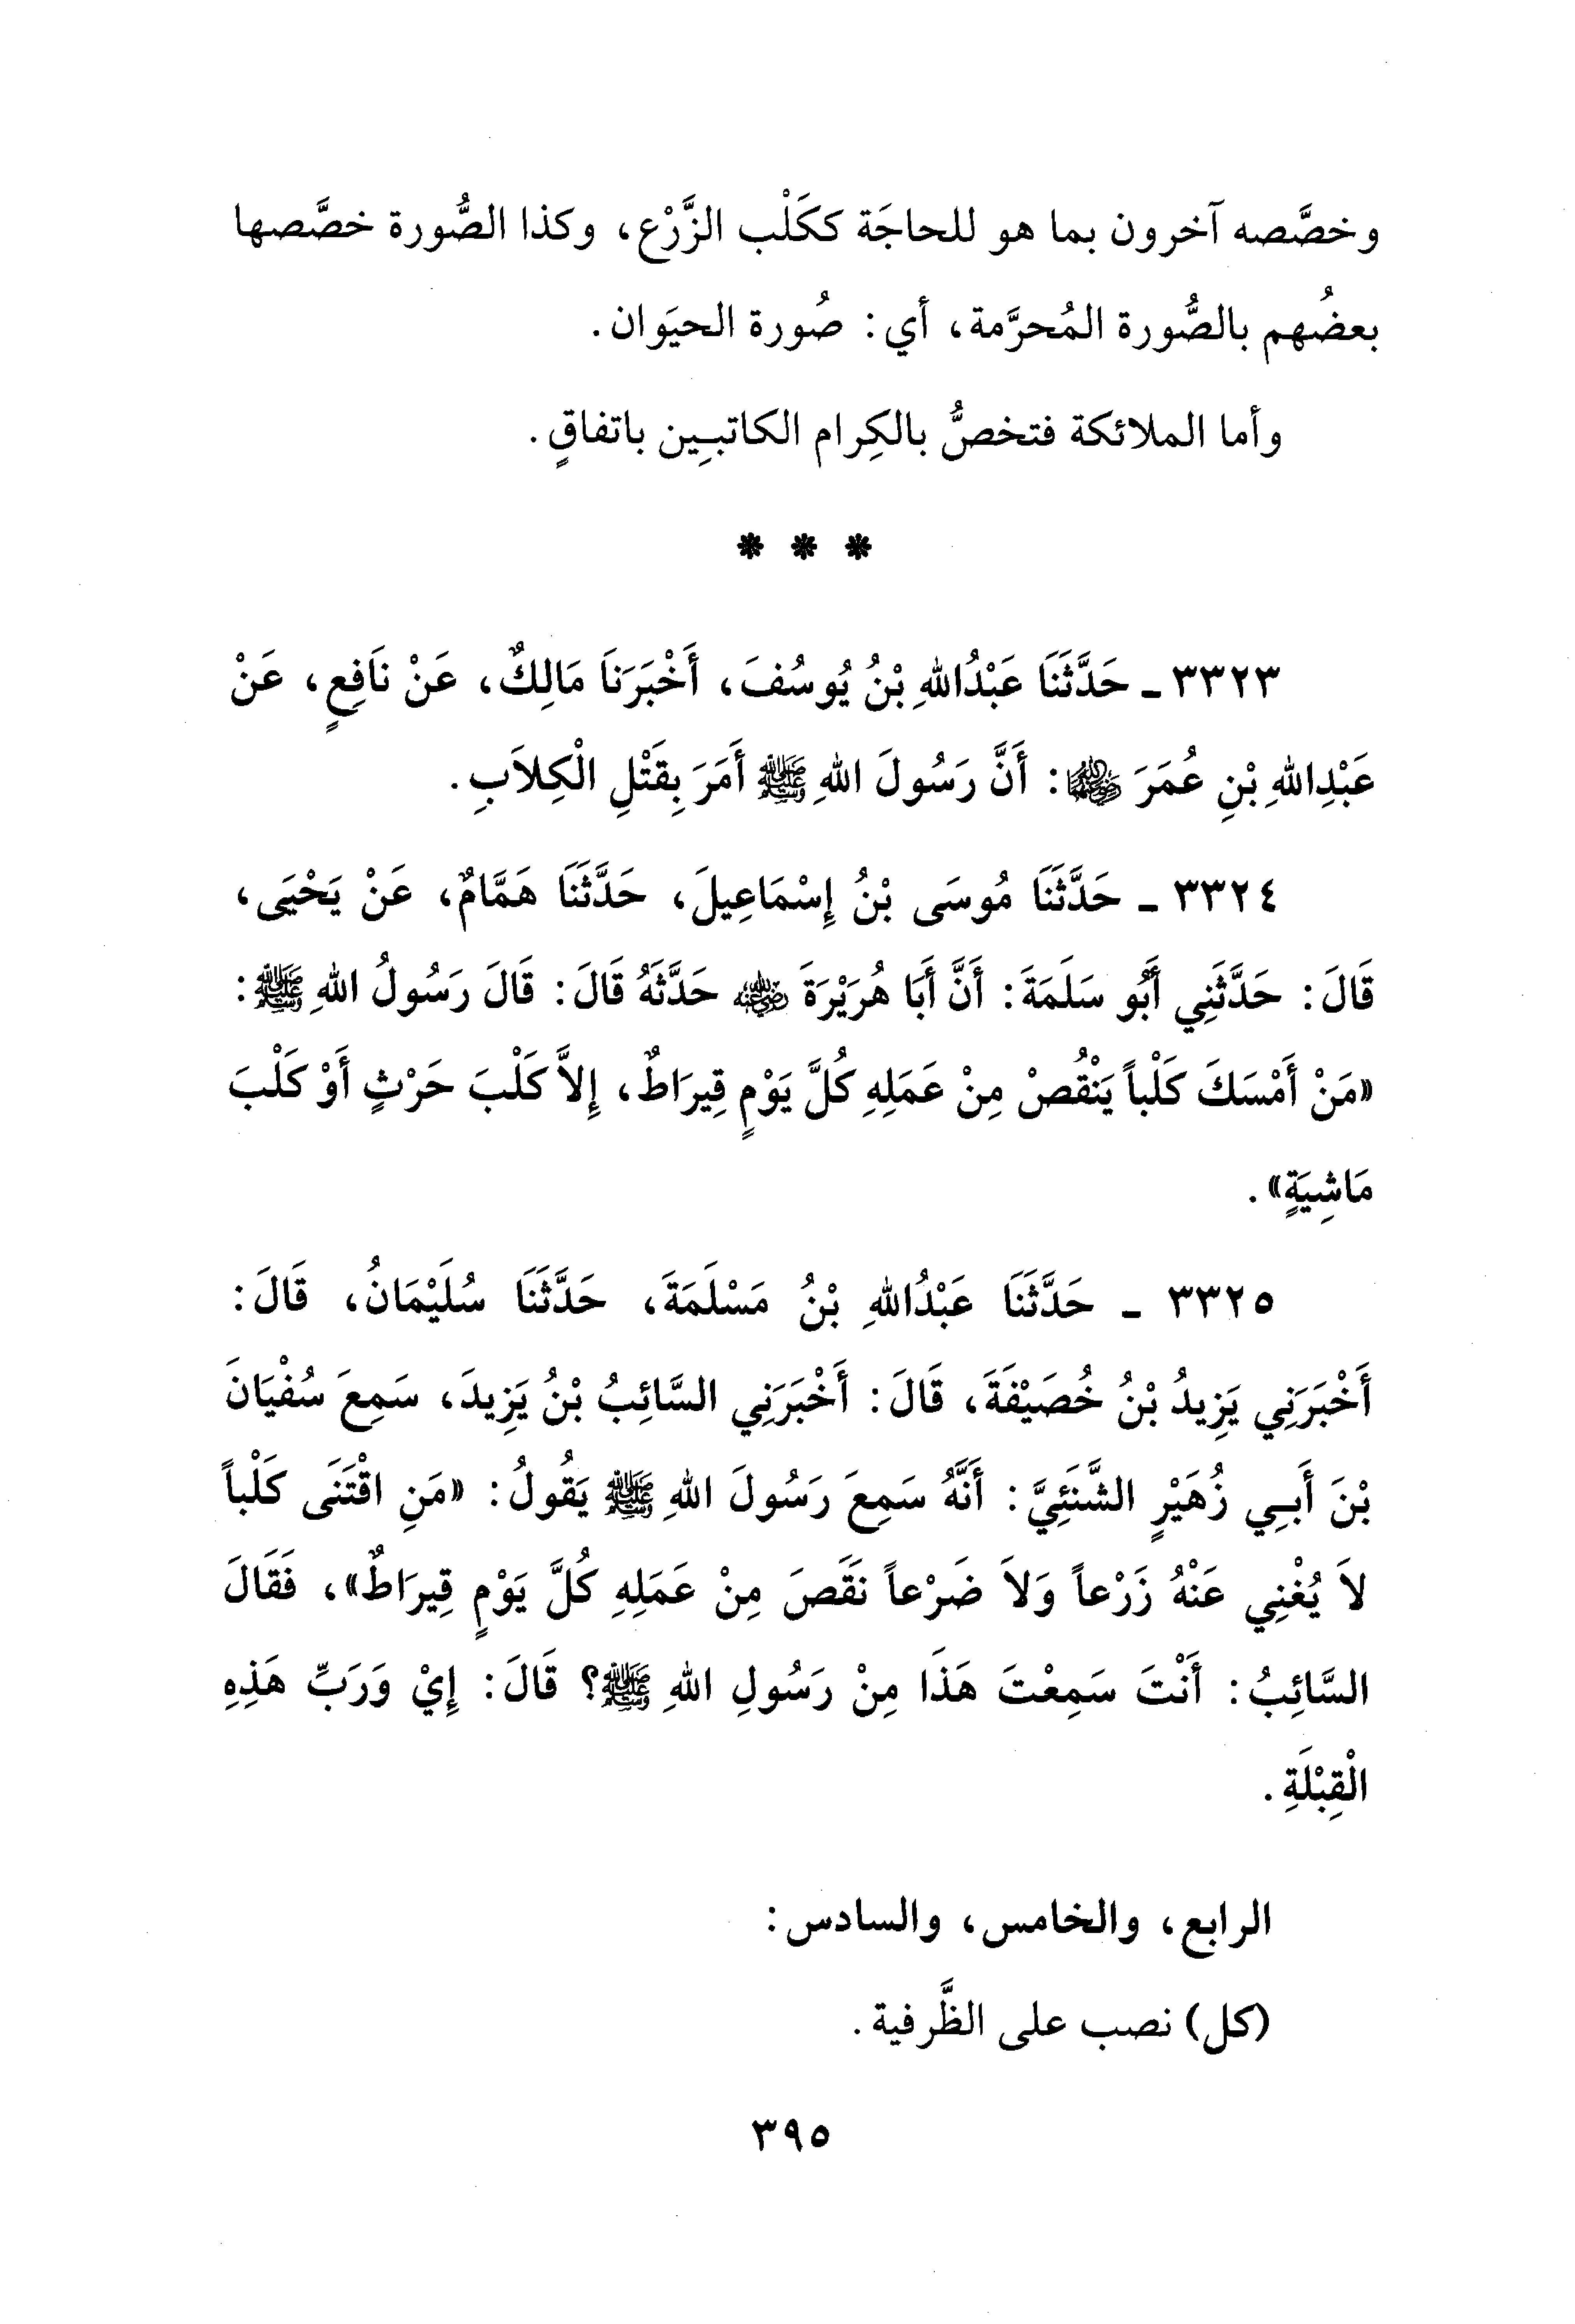 وخصَّصه آخرون بما هو للحاجَة ككَلْب الزَّرْع، وكذا الصُّورة خصَّصها
بعضُهم بالصُّورة المُحرَّمة، أي: صُورة الحيَوان.
وأما الملائكة فتخصُّ بالكِرام الكاتبِين باتفاقٍ.
* * *
٣٣٢٣ ـ حَدَّثَنَا عَبْدُاللهِ بْنُ يُوسُفَ، أَخْبَرَنَا مَالِكٌ، عَنْ نَافِعٍ، عَنْ
عَبْدِاللهِ بْنِ عُمَرَ رضي الله عنهما: أَنَّ رَسُولَ اللهِ ﷺ أَمَرَ بِقَتْلِ الْكِلاَبِ.
٣٣٢٤ ـ حَدَّثَنَا مُوسَى بْنُ إِسْمَاعِيلَ، حَدَّثَنَا هَمَّامٌ، عَنْ يَحْيَى،
قَالَ: حَدَّثَنِي أَبُو سَلَمَةَ: أَنَّ أَبَا هُرَيْرَةَ رضي الله عنه حَدَّثَهُ قَالَ: قَالَ رَسُولُ اللهِ ﷺ:
«مَنْ أَمْسَكَ كَلْباً يَنْقُصْ مِنْ عَمَلِهِ كُلَّ يَوْمٍ قِيرَاطٌ، إِلاَّ كَلْبَ حَرْثٍ أَوْ كَلْبَ
مَاشِيَةٍ».
٣٣٢٥ ـ حَدَّثَنَا عَبْدُاللهِ بْنُ مَسْلَمَةَ، حَدَّثَنَا سُلَيْمَانُ، قَالَ:
أَخْبَرَنِي يَزِيدُ بْنُ خُصَيْفَةَ، قَالَ: أَخْبَرَنِي السَّائِبُ بْنُ يَزِيدَ، سَمِعَ سُفْيَانَ
بْنَ أَبِي زُهَيْرٍ الشَّنَئِيَّ: أَنَّهُ سَمِعَ رَسُولَ اللهِ ﷺ يَقُولُ: «مَنِ اقْتَنَى كَلْباً
لاَ يُغْنِي عَنْهُ زَرْعاً وَلاَ ضَرْعاً نَقَصَ مِنْ عَمَلِهِ كُلَّ يَوْمٍ قِيرَاطٌ»، فَقَالَ
السَّائِبُ: أَنْتَ سَمِعْتَ هَذَا مِنْ رَسُولِ اللهِ ﷺ؟ قَالَ: إِيْ وَرَبِّ هَذِهِ
الْقِبْلَةِ.
الرابع، والخامس، والسادس:
(كل) نصب على الظَّرفية.
٣٩٥